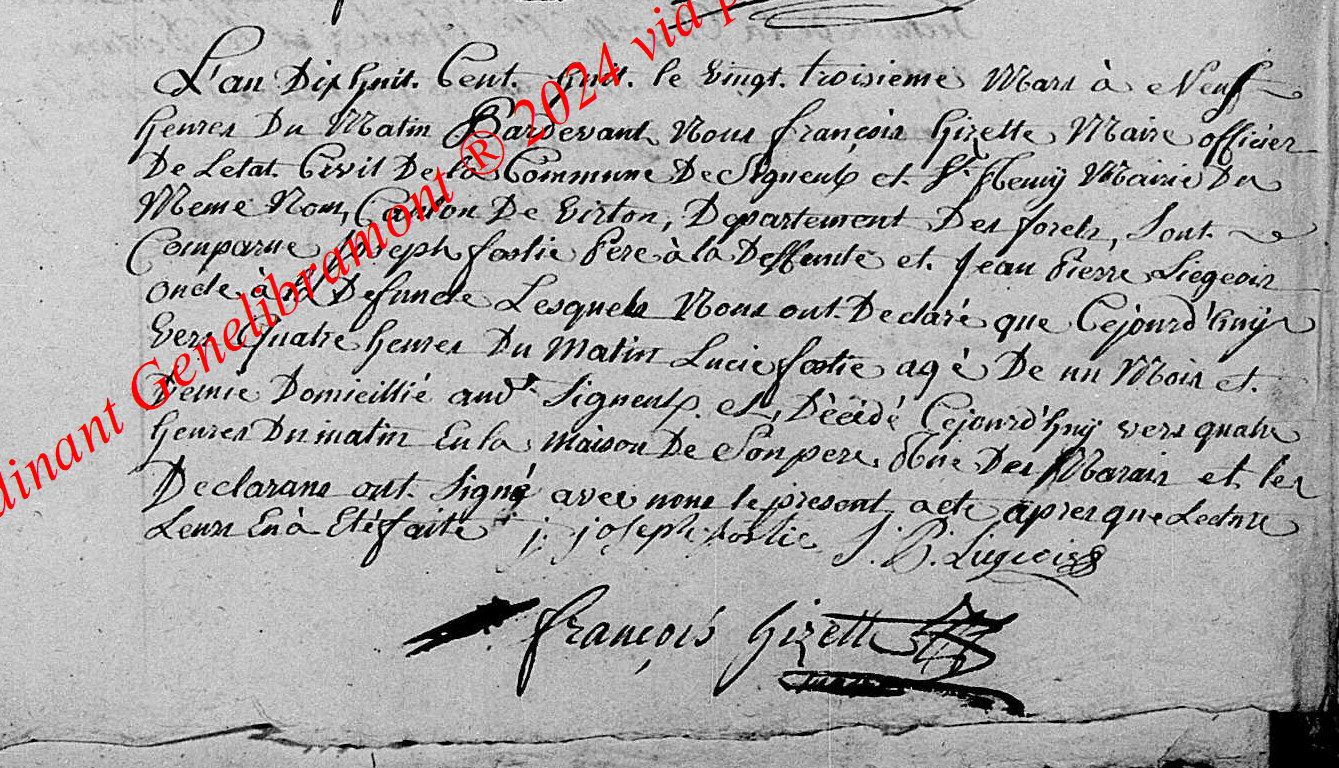 L'an Dix huit Cent huit le vingt troisieme Mars à Neuf
heures Du Matin Pardevant Nous françois Gizette Maire officier
De Letat Civil De la Commune De Signeulx et St Remÿ Mairie Du
Meme Nom, Canton De Virton, Departement Des forets, sont
Comparue Joseph fostie Pere à la Deffunte et Jean Pierre Liegeois
oncle à la Defuncte Lesquels Nous ont Declaré que Cejourd'huÿ
vers Quatre heures Du Matin Lucie fostie agé De un Mois et
Demie Domicillié audt Signeulx est Décédé Cejourd'huÿ vers quatre
heures Du matin En la Maison De Son pere Rue Des Marais et les
Declarans ont Signé avec nous le present acte apres que Lecture
Leurs En à Eté faite j. joseph fostie J. P. Liegeois
françois Gizette
dinant Genelibramont ® 2024 via p